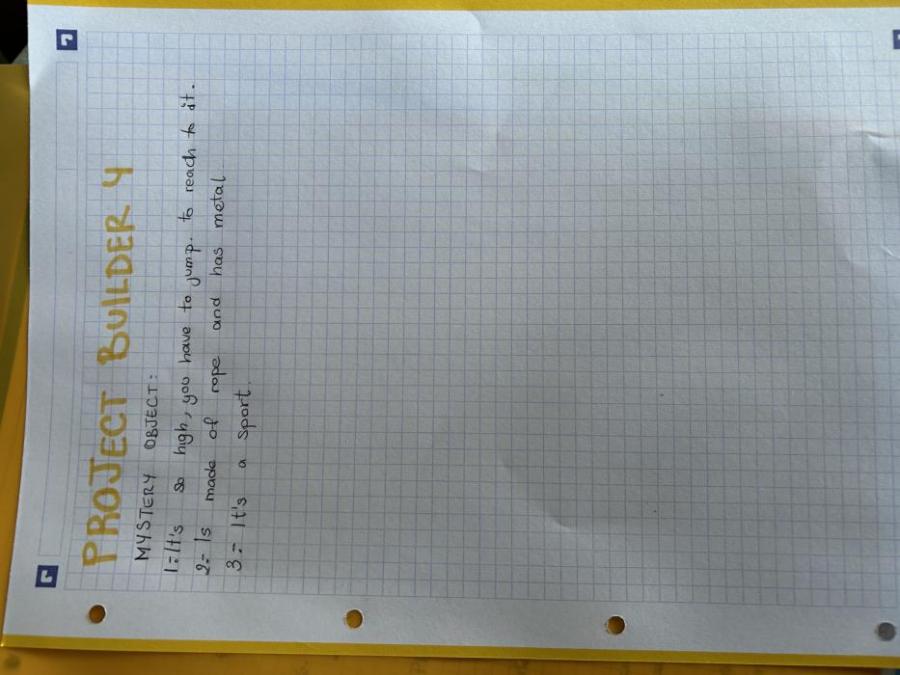 PROJECT BUILDER 4
MYSTERY OBJECT:
1=It's so high, you have to jump. to reach to it.
2= Is made of rope and has metal
3.= It's a sport.